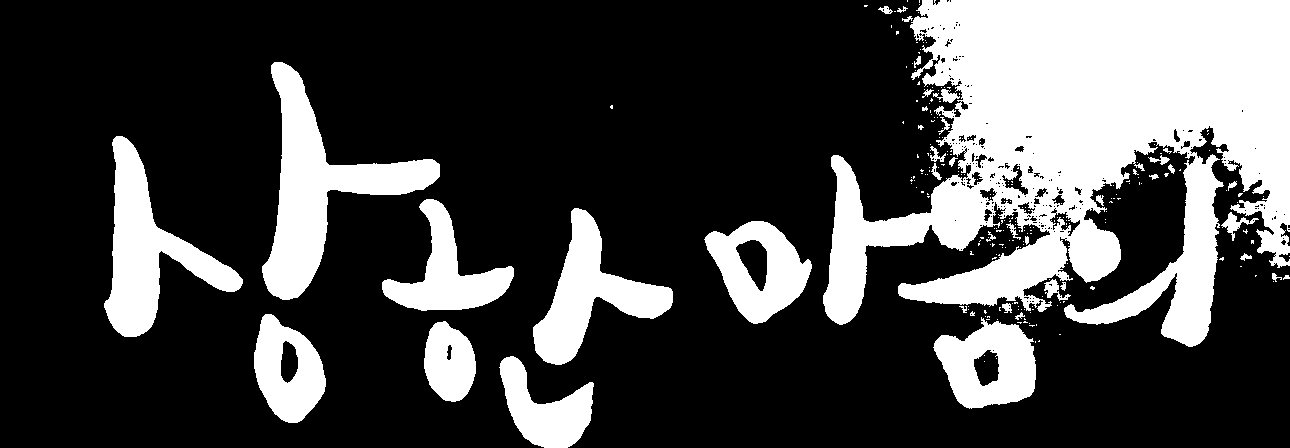 상한 마음의